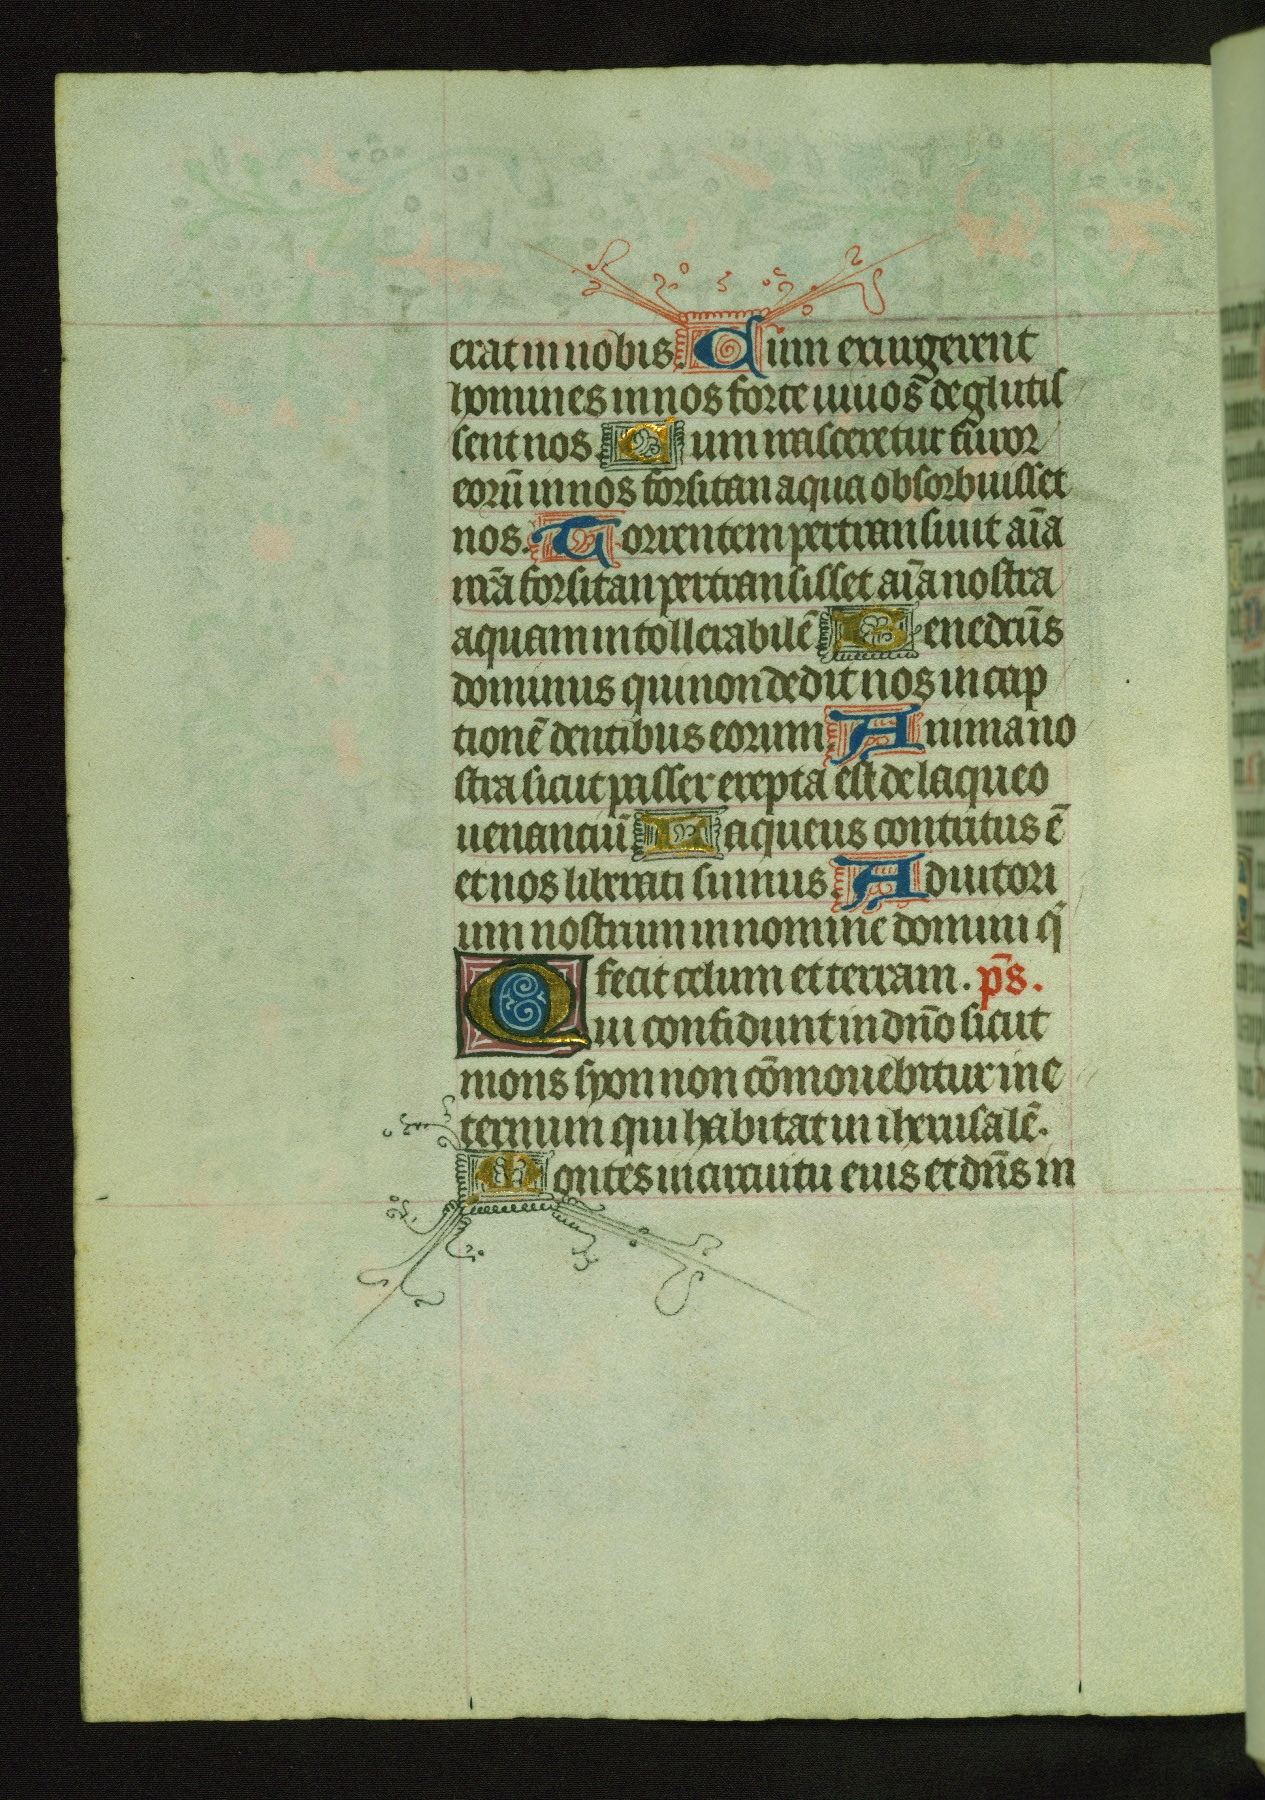 erat in nobis. Cum exurgerent
homines in nos forte uiuos deglutis
sent nos. Cum irasceretur furor
eorū in nos forsitan aqua obsorbuisset
nos. Torrentem pertransiuit aīa
nr̄a forsitan pertransisset aīa nostra
aquam intollerabilē Benedcūs
dominus qui non dedit nos in cap
tionē dentibus eorum. Anima no
stra sicut passer erepta est de laqueo
uenanciū Laqueus contritus ē
et nos liberati sumus. Adiutori
um nostrum in nomine domini q̄
fecit celum et terram. ps̄.
Qui confidunt in dn̄o sicut
mons syon non cōmouebitur in e
ternum qui habitat in iherusalē.
Montes in circuitu eius et dn̄s in